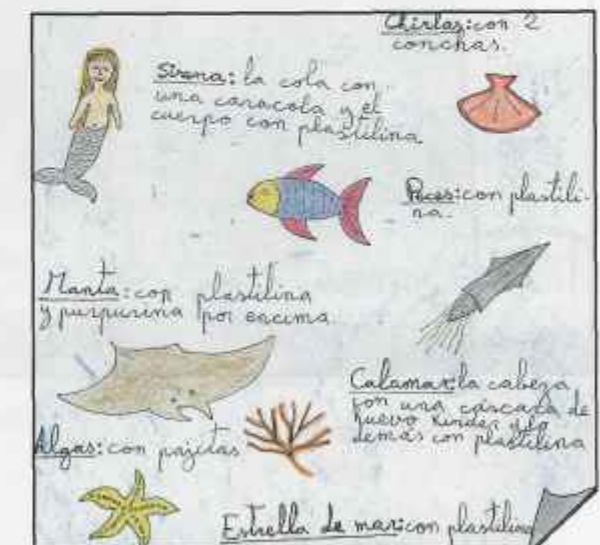 Chirlas: con 2
conchas.
Sirena: la cola con
una caracola y el
cuerpo con plastilina
Peces: con plastili-
na.
Manta: con plastilina
y purpurina por encima.
Calamar: la cabeza
con una cáscara de
huevo Kinder y lo
demás con plastilina
Algas: con pajitas
Estrella de mar: con plastilina